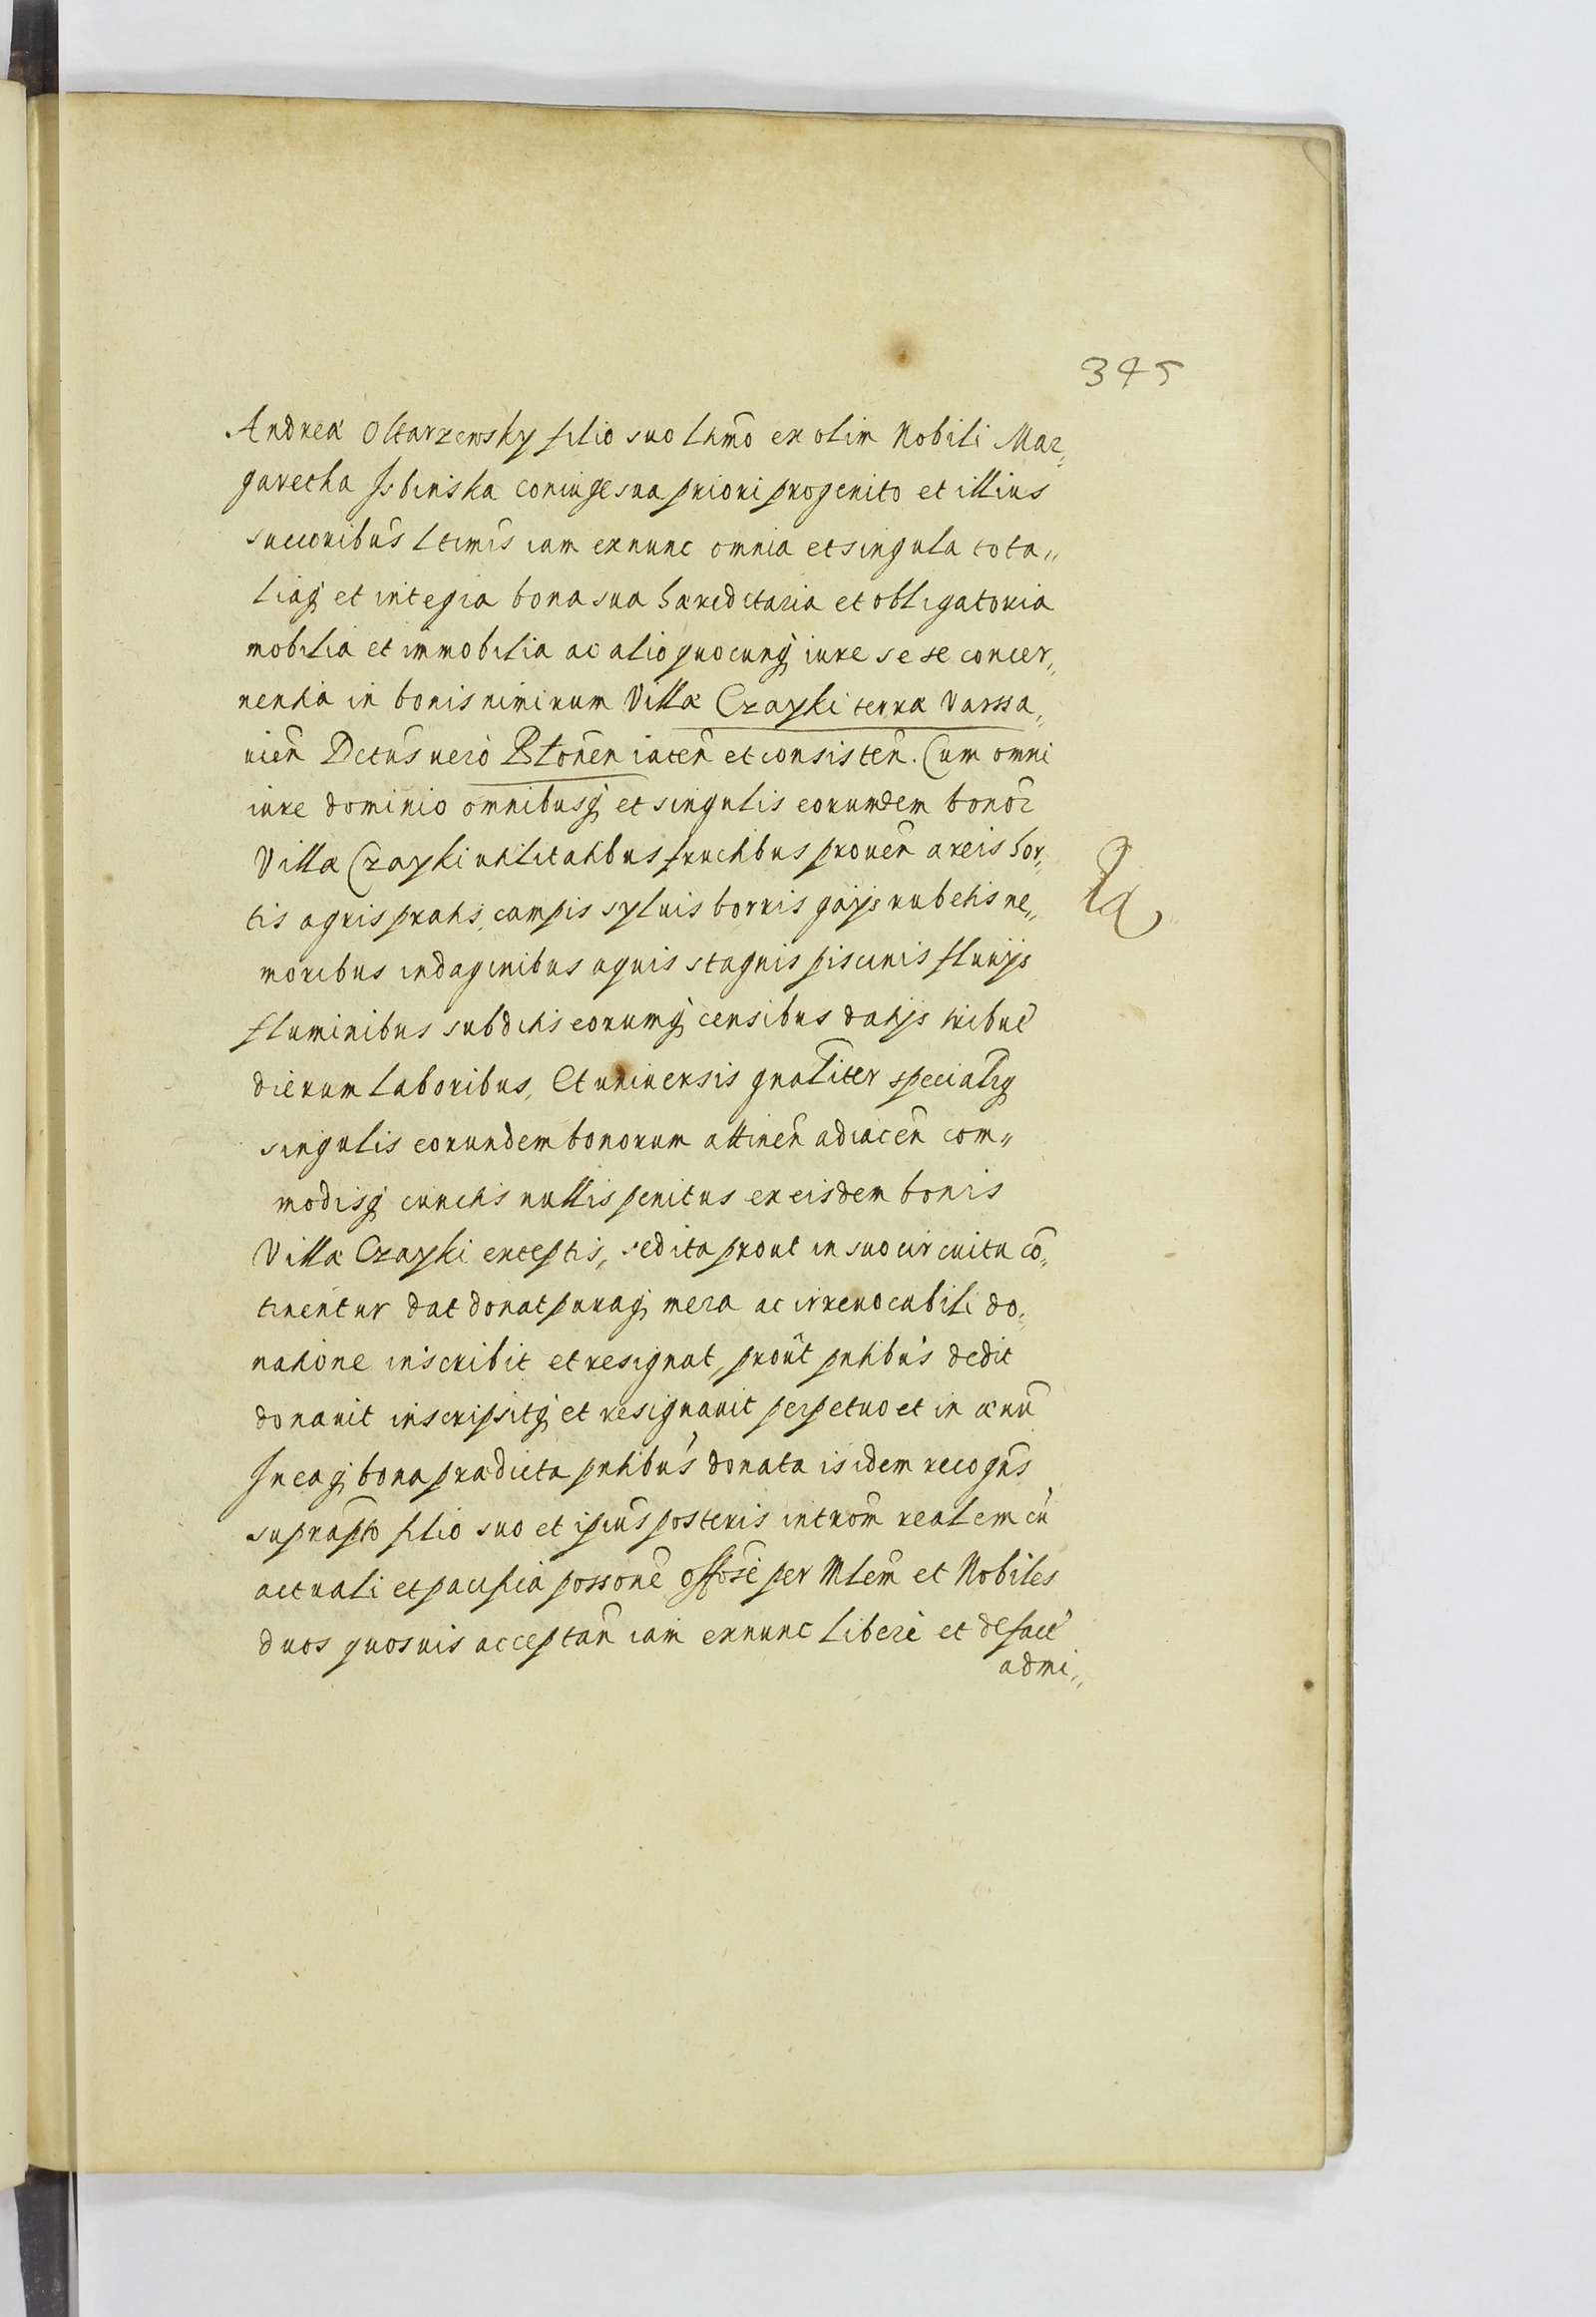 345
Andreæ Ołtarzewsky filio suo lt̃imo ex olim Nobili Mar„
garetha Jsbinska coniuge sua priori progenito et illius
succoribus̃ ltimis̃ iam exnunc omnia et singula tota„
liaq; et integra bona sua hæreditaria et obligatoria
mobilia et immobilia ac alio quocunq; iure sese concer„
nentia in bonis nimirum Villæ Czayki terræ Varssa„
uien̄ Dctus̃ vero Błonen̄ iacen̄ et consisten̄. Cum omni
iure dominio omnibusq; et singulis eorumdem bonor̃
Villæ Czayki utilitatibus fructibus prouen̄ areis hor„
tis agris pratis, campis syluis borris gajis rubetis ne„
moribus indaginibus aquis stagnis piscinis fluvijs
fluminibus subditis eorumq; censibus datijs tribut̃
dierum laboribus, Et universis gnãliter specialr̃q;
singulis eorundem bonorum attinen̄ adiacen̄ com„
modisq; cunctis nullis penitus ex eisdem bonis
Villæ Czayki exceptis, sed ita prout in suo circuitu cõ„
tinentur dat donat puraq; mera ac irrevocabili do„
natione inscribit et resignat, prout pñtibus dedit
donavit inscripsitq; et resignavit perpetuo et in ævũ
Jn eaq; bona prædicta pñtibus donata is idem recogñs
suprapto̅ filio suo et ipius̃ posteris introm̃ realem cũ
actuali et pacifica possonẽ per Mlem̃ et Nobiles
duos quosvis acceptan̄ iam exnunc liberè et defact̃
admi„